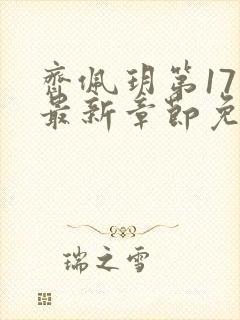 齊佩玥第17
最新章節免
瑞之雪